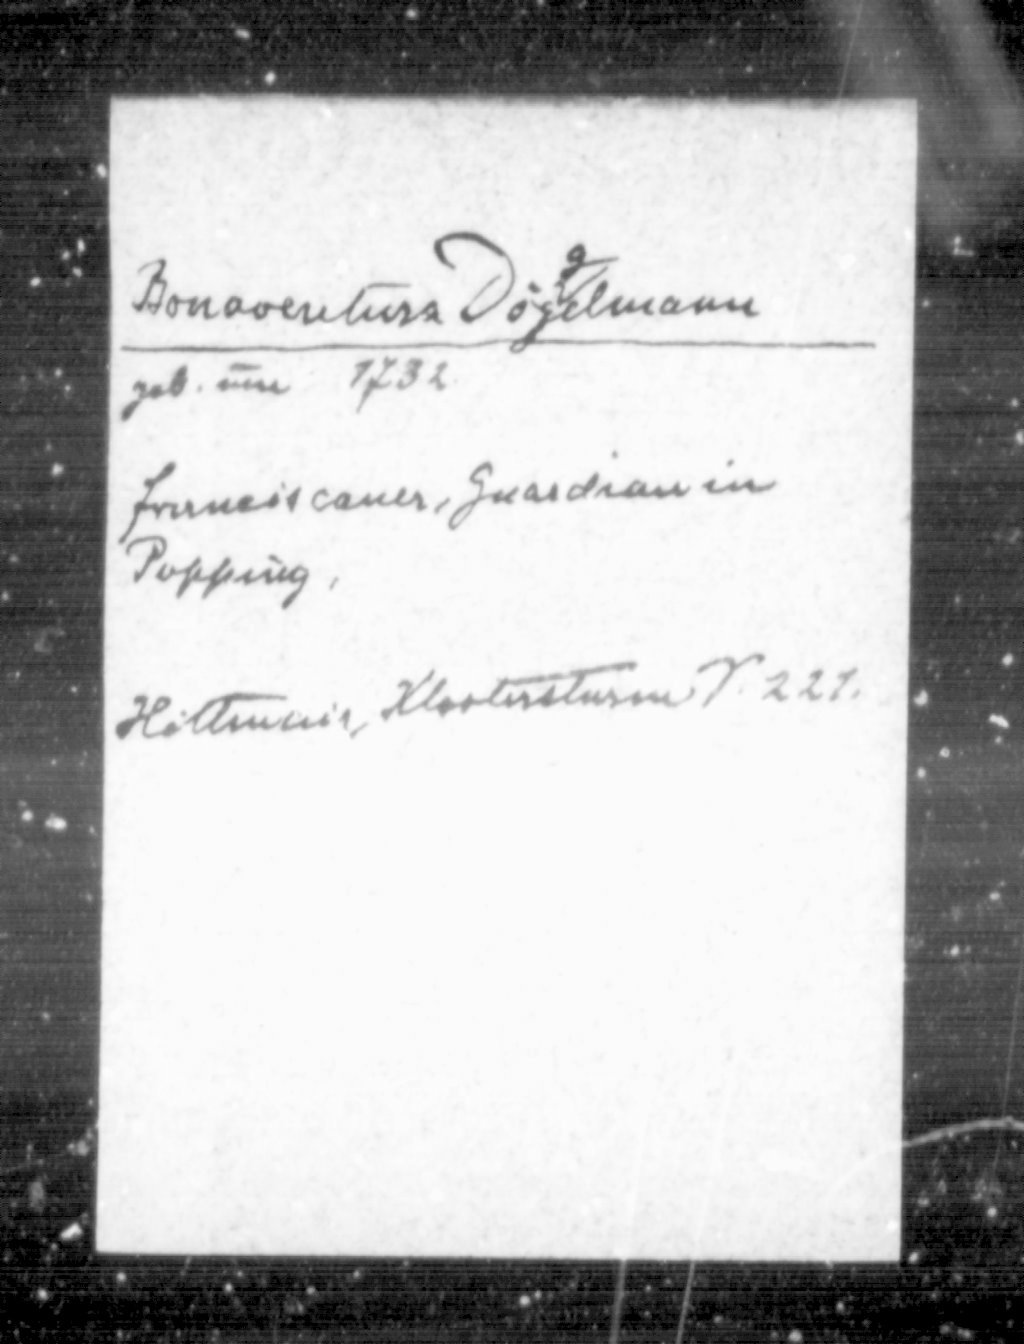 Bonaventura Döggelmann
geb. um 1732
franciscaner, Guardian in
Popping,
Höttmair, Klostersturm V. 221.